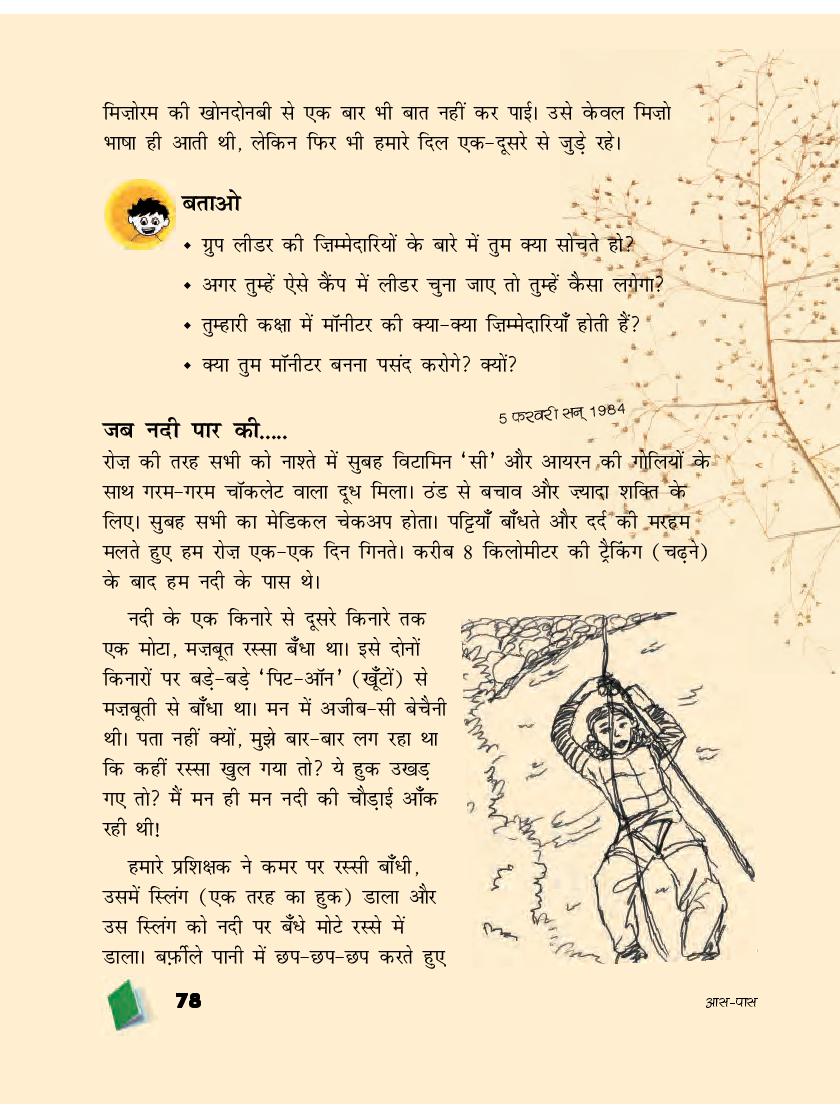 मिज़ोरम की खोनदोनबी से एक बार भी बात नहीं कर पाई। उसे केवल मिज़ो
भाषा ही आती थी, लेकिन फिर भी हमारे दिल एक-दूसरे से जुड़े रहे।
बताओ
• ग्रुप लीडर की ज़िम्मेदारियों के बारे में तुम क्या सोचते हो?
• अगर तुम्हें ऐसे कैंप में लीडर चुना जाए तो तुम्हें कैसा लगेगा?
• तुम्हारी कक्षा में मॉनीटर की क्या-क्या ज़िम्मेदारियाँ होती हैं?
• क्या तुम मॉनीटर बनना पसंद करोगे? क्यों?
5 फरवरी सन् 1984
जब नदी पार की.....
रोज़ की तरह सभी को नाश्ते में सुबह विटामिन ‘सी’ और आयरन की गोलियों के
साथ गरम-गरम चॉकलेट वाला दूध मिला। ठंड से बचाव और ज़्यादा शक्ति के
लिए। सुबह सभी का मेडिकल चेकअप होता। पट्टियाँ बाँधते और दर्द की मरहम
मलते हुए हम रोज़ एक-एक दिन गिनते। करीब 8 किलोमीटर की ट्रैकिंग (चढ़ने)
के बाद हम नदी के पास थे।
नदी के एक किनारे से दूसरे किनारे तक
एक मोटा, मज़बूत रस्सा बँधा था। इसे दोनों
किनारों पर बड़े-बड़े ‘पिट-ऑन’ (खूँटों) से
मज़बूती से बाँधा था। मन में अजीब-सी बेचैनी
थी। पता नहीं क्यों, मुझे बार-बार लग रहा था
कि कहीं रस्सा खुल गया तो? ये हुक उखड़
गए तो? मैं मन ही मन नदी की चौड़ाई आँक
रही थी!
हमारे प्रशिक्षक ने कमर पर रस्सी बाँधी,
उसमें स्लिंग (एक तरह का हुक) डाला और
उस स्लिंग को नदी पर बँधे मोटे रस्से में
डाला। बर्फ़ीले पानी में छप-छप-छप करते हुए
78
आस-पास